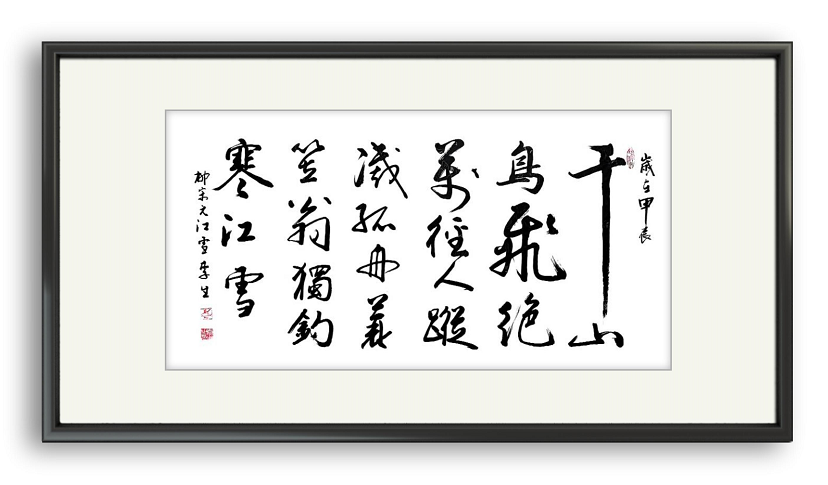 歲在甲辰
千山
鳥飛絕
萬徑人蹤
滅孤舟蓑
笠翁獨釣
寒江雪
柳宗元江雪李生